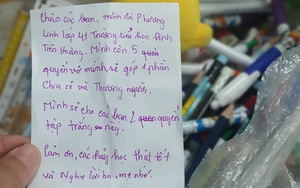 Chào các bạn, mình là Phương
Linh lớp 4/1 Trường tiểu học Đinh
Tiên Hoàng. Mình còn 5 quyển
quyển vở mình sẽ góp 1 phần
Chia sẻ và Thương người.
Mình sẽ cho các bạn 2 quyển
tập Trắng này.
Cảm ơn, các bạn học thật tốt
và Nghe lời ba, mẹ nhé.